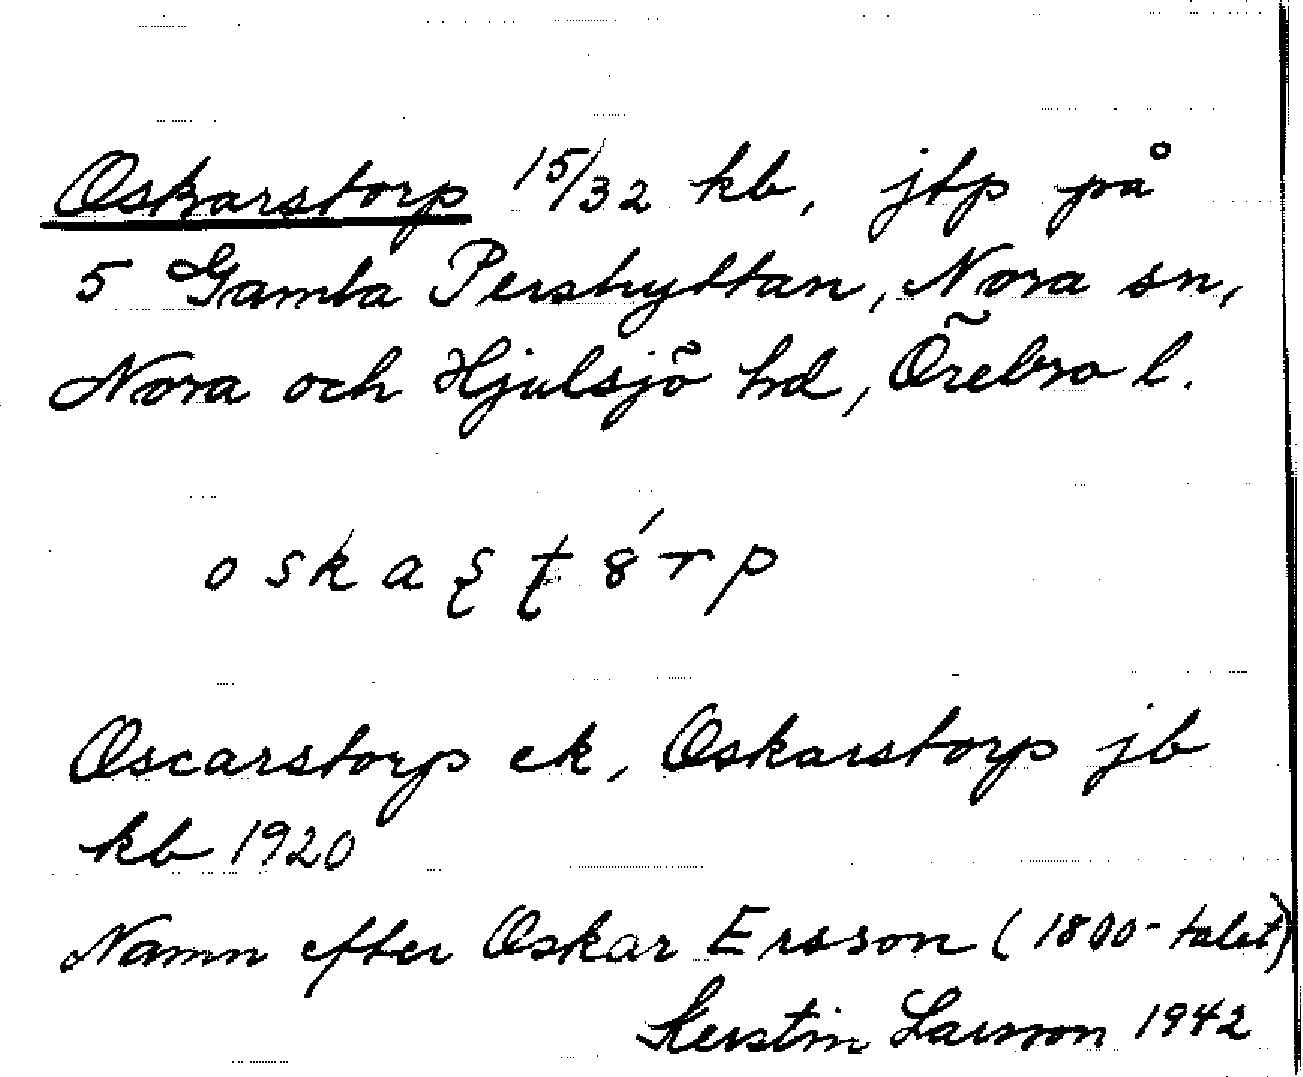 Oskarstorp 15/32 kb, jtp på
5 Gamla Pershyttan, Nora sn,
Nora och Hjulsjö hd, Örebro l.
oskaʂʈ8́rp
Oscarstorp ek, Oskarstorp jb
kb 1920
Namn efter Oskar Ersson (1800-talet)
Kerstin Larsson 1942